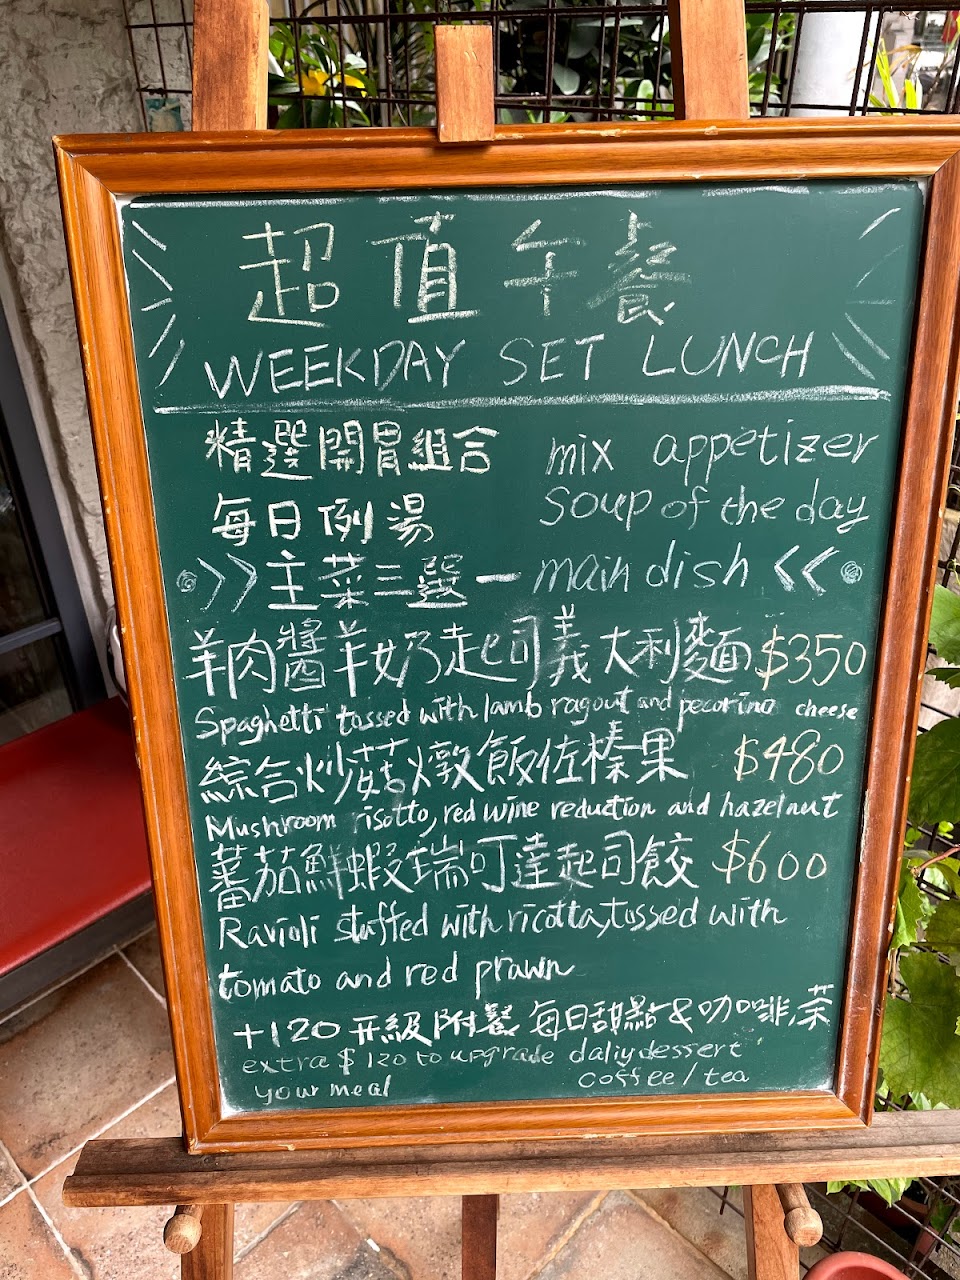 超值午餐
WEEKDAY SET LUNCH
精選開胃組合 mix appetizer
每日例湯 soup of the day
>>主菜三選一 main dish <<
羊肉醬羊奶起司義大利麵 $350
Spaghetti tossed with lamb ragout and pecorino cheese
綜合炒菇燉飯佐榛果 $480
Mushroom risotto, red wine reduction and hazelnut
蕃茄鮮蝦瑞可達起司餃 $600
Ravioli stuffed with ricotta, tossed with
tomato and red prawn
+120 升級附餐 每日甜點&咖啡,茶
extra $120 to upgrade daliy dessert
your meal coffee/tea